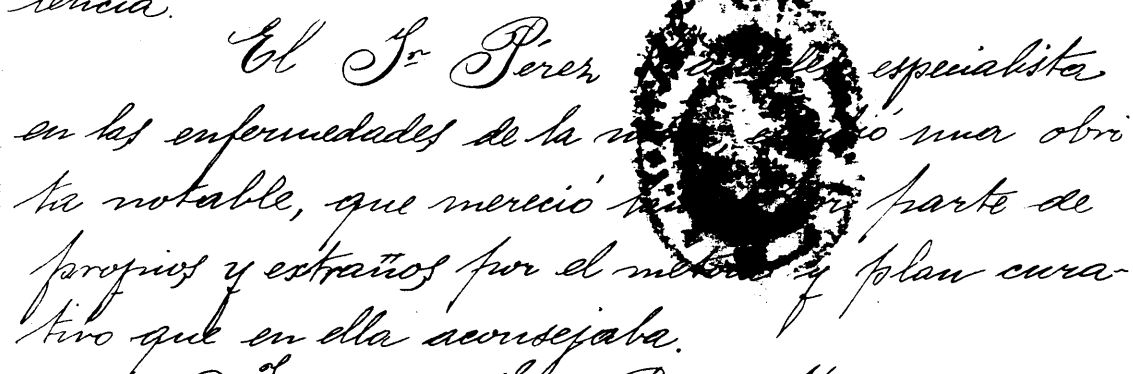 tencia.
El Sr Pérez especialista
en las enfermedades de la una obri
ta notable, que mereció parte de
propios y extraños por el metodo y plan cura-
tivo que en ella aconsejaba.